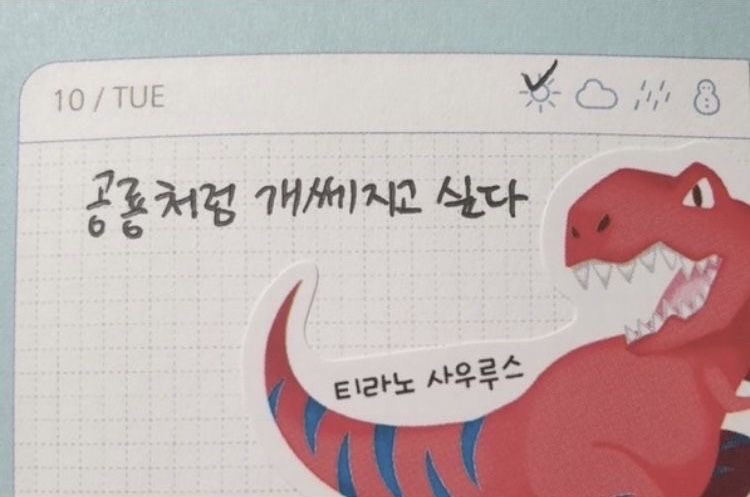 10 / TUE
공룡처럼 개쎄지고 싶다
티라노 사우루스